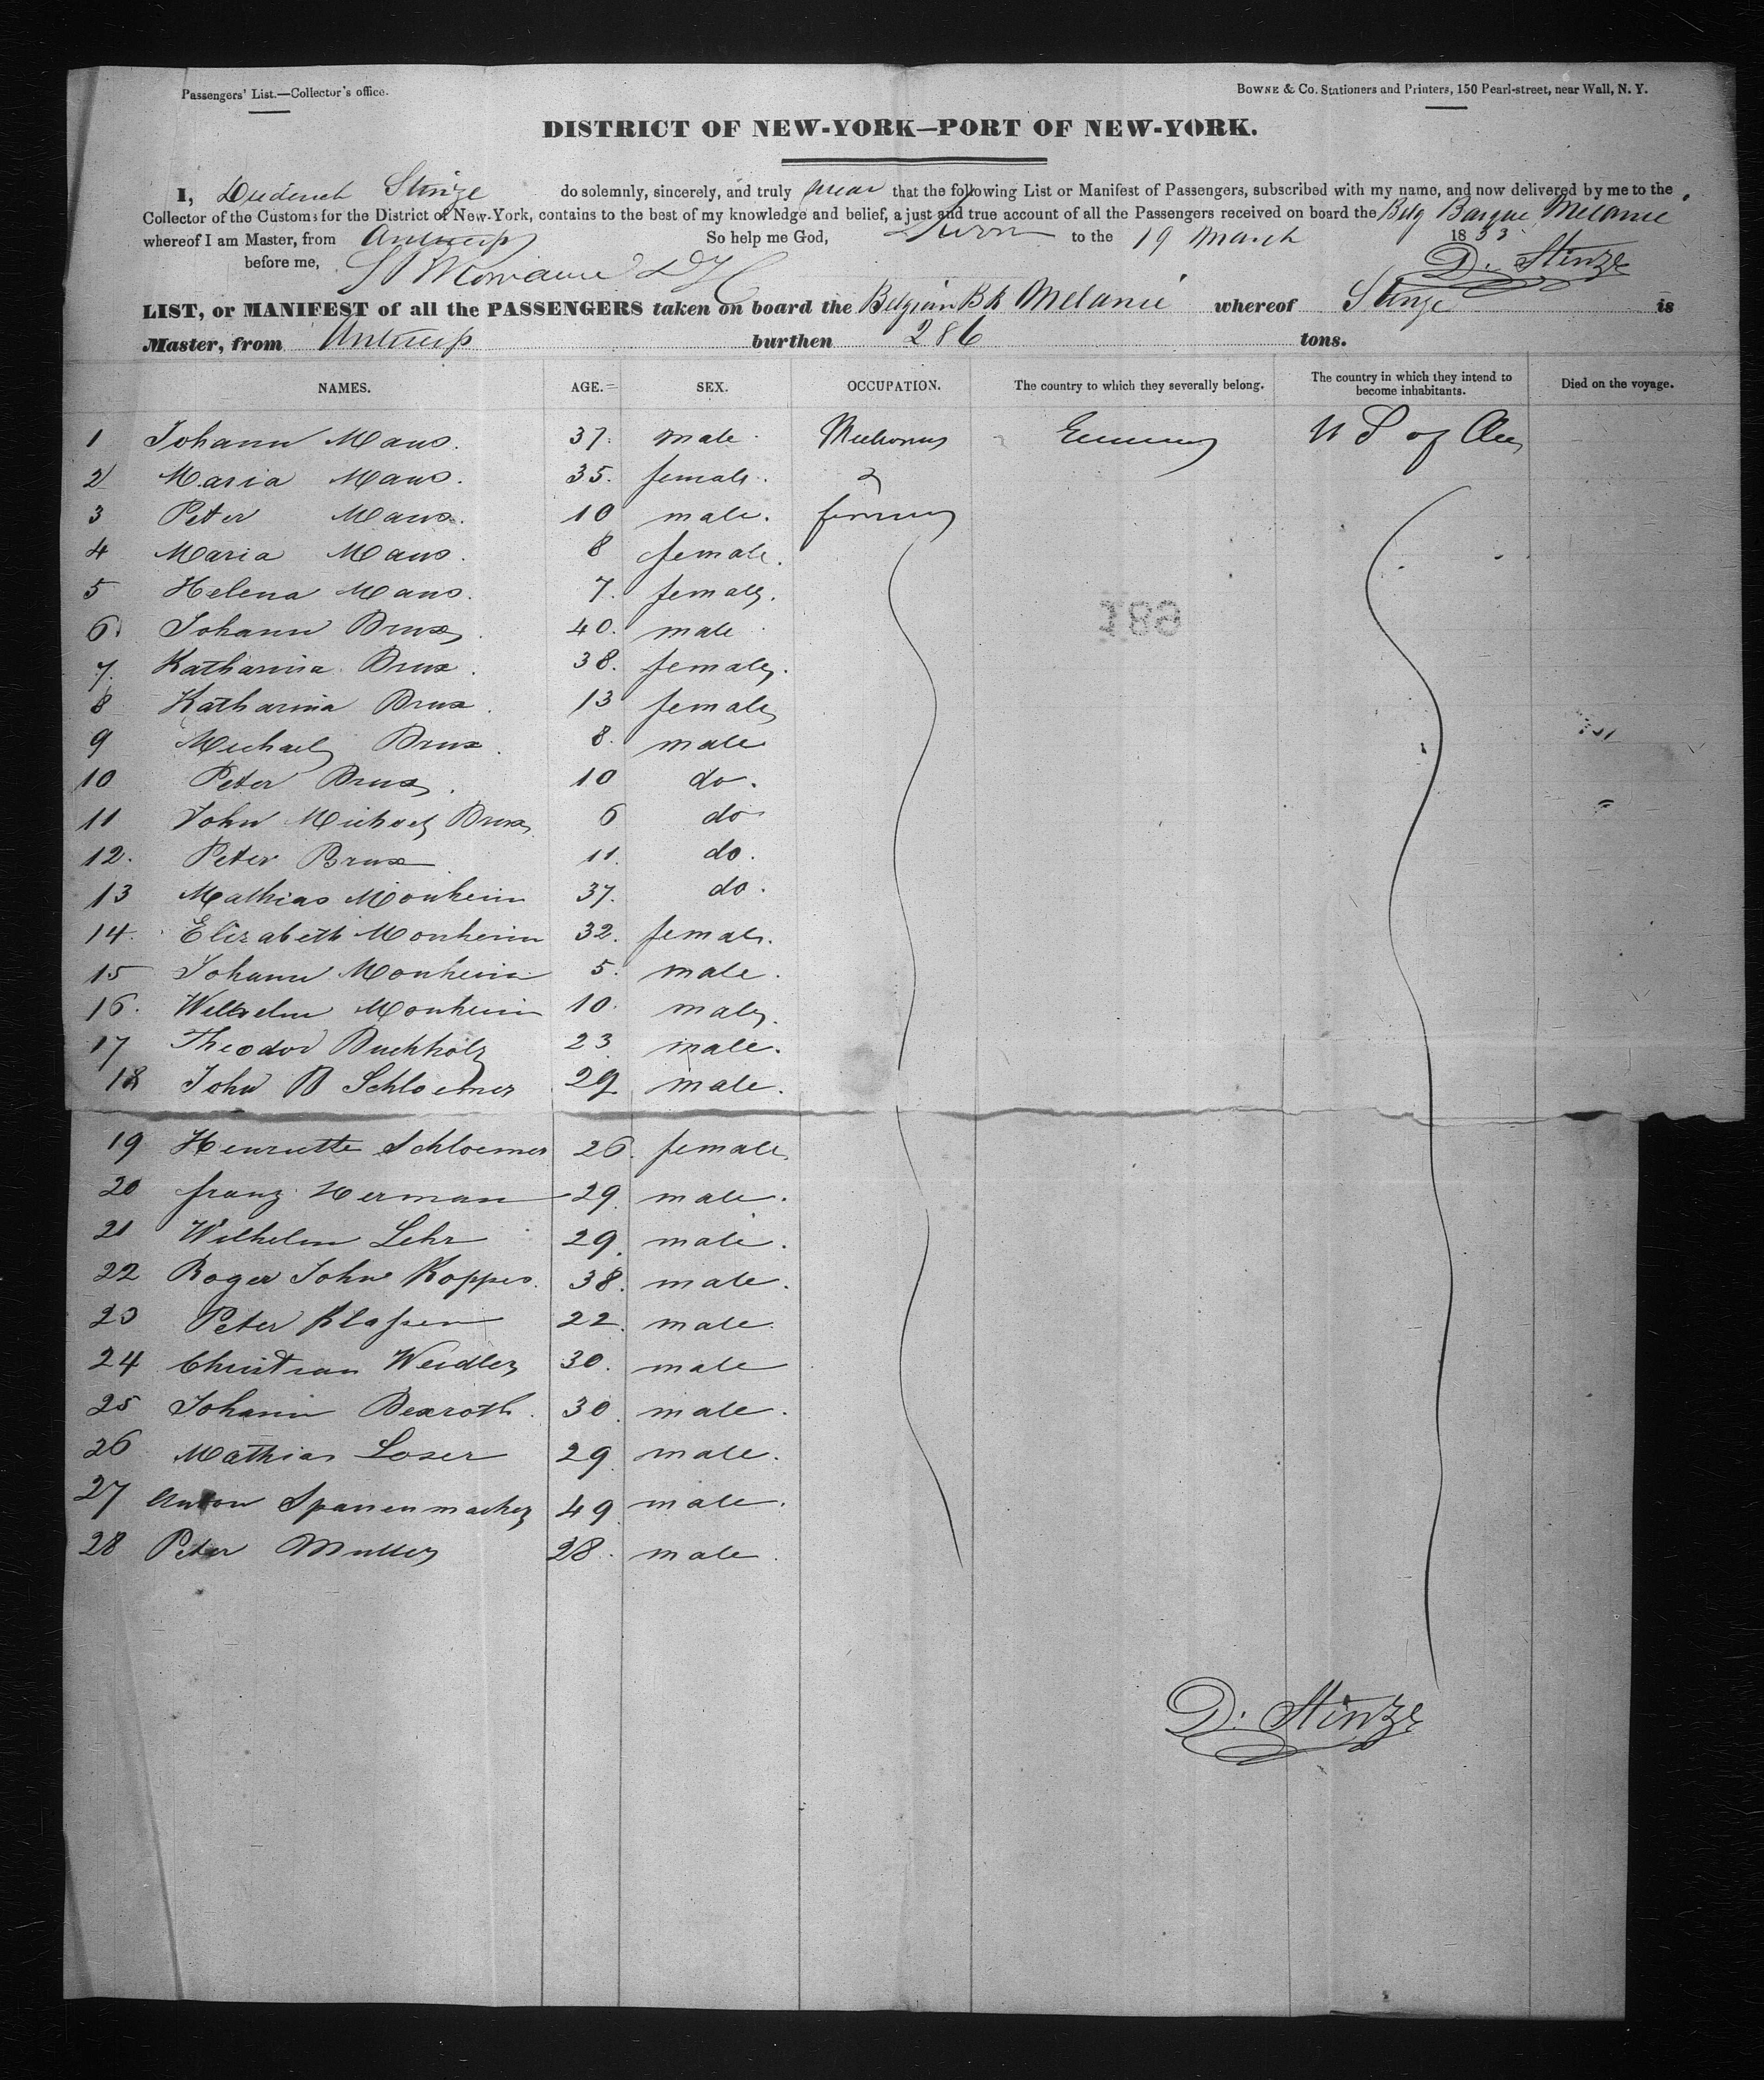 Passengers' List.—Collector's office.
BOWNE & Co. Stationers and Printers, 150 Pearl-street, near Wall, N. Y.
DISTRICT OF NEW-YORK—PORT OF NEW-YORK.
I, Diederich Stinze do solemnly, sincerely, and truly swear that the following List or Manifest of Passengers, subscribed with my name, and now delivered by me to the
Collector of the Customs for the District of New-York, contains to the best of my knowledge and belief, a just and true account of all the Passengers received on board the Belg Barque Melanie
whereof I am Master, from Antwerp So help me God, Sworn to the 19 March 1853
before me, D. Stinze
LIST, or MANIFEST of all the PASSENGERS taken on board the Belgian Bk Melanie whereof Stinze is
Master, from Antwerp burthen 286 tons.
NAMES. AGE. SEX. OCCUPATION. The country to which they severally belong. The country in which they intend to become inhabitants. Died on the voyage.
1 Johann Maus. 37. male. Mechanics Germany U S of Am
2 Maria Maus. 35. female. &
3 Peter Maus. 10 male. farmers
4 Maria Maus. 8 female.
5 Helena Maus. 7. female.
6. Johann Brux. 40. male
7. Katharina Brux. 38. female.
8 Katharina Brux. 13 female
9 Michael Brux. 8. male
10 Peter Brux. 10 do.
11 John Michael Brux 6 do
12. Peter Brux 11. do.
13 Mathias Monheim 37. do.
14. Elizabeth Monheim 32. female.
15 Johann Monheim 5. male.
16. Wilhelm Monheim 10. male.
17 Theodor Buchholz 23 male.
18 John B Schloemer 29 male.
19 Henriette Schloemer 26. female
20 franz Herman 29 male.
21 Wilhelm Lehr 29. male.
22 Roger John Koppes. 38. male.
23 Peter Klassen 22. male.
24 Christian Weidler 30. male
25 Johann Bexroth. 30. male.
26 Mathias Loser 29 male.
27 Anton Spanenmacher 49 male.
28 Peter Muller 28. male.
D. Stinze